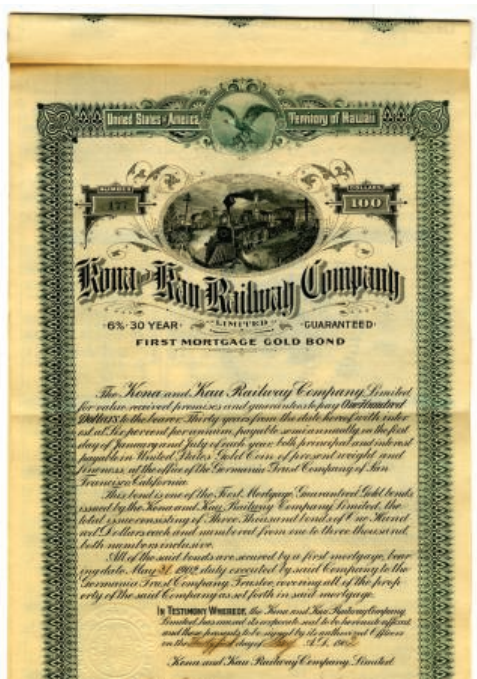 United States of America
Territory of Hawaii
NUMBER
177
DOLLARS
100
Kona and Kau Railway Company
LIMITED
6% 30 YEAR
GUARANTEED
FIRST MORTGAGE GOLD BOND
The Kona and Kau Railway Company, Limited
for value received promises and guarantees to pay One Hundred
Dollars to the bearer Thirty years from the date hereof with inter
est at Six percent per annum, payable semi annually on the first
day of January and July of each year, both principal and interest
payable in United States Gold Coin of present weight and
fineness, at the office of the Germania Trust Company of San
Francisco, California.
This bond is one of the First Mortgage Guaranteed Gold bonds
issued by the Kona and Kau Railway Company Limited, the
total issue consisting of Three Thousand bonds of One Hund
red Dollars each and numbered from one to three thousand,
both numbers inclusive.
All of the said bonds are secured by a first mortgage, bear
ing date May 21, 1902, duly executed by said Company to the
Germania Trust Company, Trustee, covering all of the prop
erty of the said Company as set forth in said mortgage.
IN TESTIMONY WHEREOF, the Kona and Kau Railway Company,
Limited has caused its corporate seal to be hereunto affixed
and these presents to be signed by its authorized Officers
on the day of May A.D. 1902
Kona and Kau Railway Company, Limited